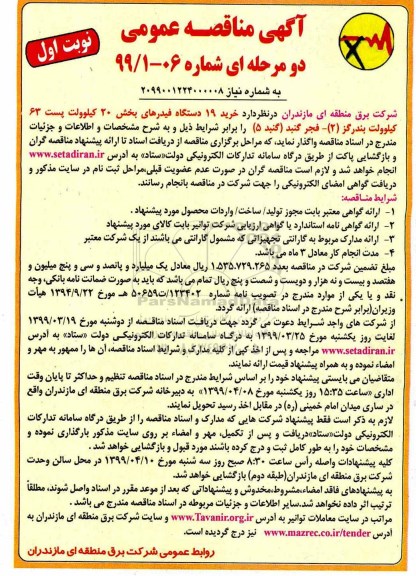 آگهی مناقصه عمومی
نوبت اول
دو مرحله ای شماره ۰۶-۹۹/۱
به شماره نیاز ۲۰۹۹۰۰۱۲۲۴۰۰۰۰۰۸
شرکت برق منطقه ای مازندران درنظردارد خرید ۱۹ دستگاه فیدرهای بخش ۲۰ کیلوولت پست ۶۳
کیلوولت بندرگز (۲)- فجر گنبد (گنبد ۵) را برابر شرایط ذیل و به شرح مشخصات و اطلاعات و جزئیات
مندرج در اسناد مناقصه واگذار نماید، که مراحل برگزاری مناقصه از دریافت اسناد تا ارائه پیشنهاد مناقصه گران
و بازگشایی پاکت از طریق درگاه سامانه تدارکات الکترونیکی دولت«ستاد» به آدرس www.setadiran.ir
انجام خواهد شد و لازم است مناقصه گران در صورت عدم عضویت قبلی،مراحل ثبت نام در سایت مذکور و
دریافت گواهی امضای الکترونیکی را جهت شرکت در مناقصه بانجام رسانند.
شرایط مناقصه:
۱- ارائه گواهی معتبر بابت مجوز تولید/ ساخت/ واردات محصول مورد پیشنهاد .
۲- ارائه گواهی نامه استاندارد یا گواهی ارزیابی شرکت توانیر بابت کالای مورد پیشنهاد
۳- ارائه مدارک مربوط به گارانتی تجهیزاتی که مشمول گارانتی می باشند از یک شرکت معتبر
۴- مدت انجام کار معادل ۳ ماه می باشد.
مبلغ تضمین شرکت در مناقصه بعدد ۱.۵۳۵.۷۲۹.۲۶۵ ریال معادل یک میلیارد و پانصد و سی و پنج میلیون و
هفتصد و بیست و نه هزار و دویست و شصت و پنج ریال تمام می باشد که باید به صورت ضمانت نامه بانکی، وجه
نقد و یا یکی از موارد مندرج در تصویب نامه شماره ۱۲۳۴۰۲/ت۵۰۶۵۹ هـ مورخ ۱۳۹۴/۹/۲۲ هیأت
وزیران(برابر شرح مندرج در اسناد مناقصه) ارائه گردد.
از شرکت های واجد شرایط دعوت می گردد جهت دریافت اسناد مناقصه از دوشنبه مورخ ۱۳۹۹/۰۳/۱۹
لغایت روز یکشنبه مورخ ۱۳۹۹/۰۳/۲۵ به درگاه سامانه تدارکات الکترونیکی دولت «ستاد» به آدرس
www.setadiran.ir مراجعه و پس از اخذ کپی از کلیه مدارک و شرایط اسناد مناقصه، آن ها را ممهور به مهر و
امضاء نموده و به همراه پیشنهاد قیمت ارائه نمایند.
متقاضیان می بایستی پیشنهاد خود را بر اساس شرایط مندرج در اسناد مناقصه تنظیم و حداکثر تا پایان وقت
اداری «ساعت ۱۵:۳۵ روز یکشنبه مورخ ۱۳۹۹/۰۴/۰۸» به دبیرخانه شرکت برق منطقه ای مازندران واقع
در ساری میدان امام خمینی (ره) در مقابل اخذ رسید تحویل نمایند.
لازم به ذکر است فقط پیشنهاد شرکت هایی که مدارک و اسناد مناقصه را از طریق درگاه سامانه تدارکات
الکترونیکی دولت«ستاد»دریافت و پس از تکمیل، مهر و امضاء بر روی سایت مذکور بارگذاری نموده و
مشخصات خود را به طور کامل ثبت و درج کرده باشند مورد قبول و بازگشایی خواهد شد .
کلیه پیشنهادات واصله رأس ساعت ۸:۳۰ صبح روز سه شنبه مورخ ۱۳۹۹/۰۴/۱۰ در محل سالن وحدت
شرکت برق منطقه ای مازندران(طبقه دوم) بازگشایی خواهد شد.
به پیشنهادهای فاقد امضاء،مشروط،مخدوش و پیشنهاداتی که بعد از موعد مقرر در اسناد واصل شوند، مطلقاً
ترتیب اثر داده نخواهد شد.سایر اطلاعات و جزئیات مربوطه در اسناد مناقصه مندرج می باشد .
مراتب در سایت معاملات توانیر به آدرس www.Tavanir.org.ir و سایت شرکت برق منطقه ای مازندران به
آدرس www.mazrec.co.ir/tender نیز درج گردیده است.
روابط عمومی شرکت برق منطقه ای مازندران